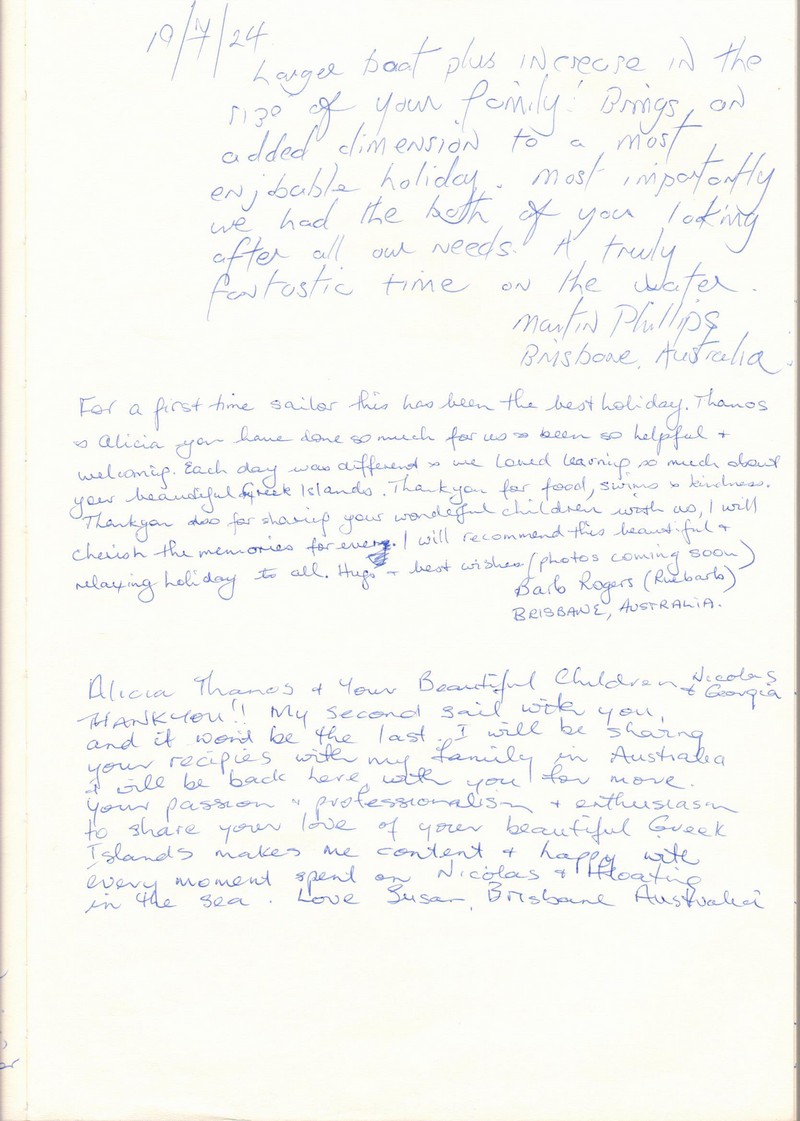 19/7/24
Larger boat plus increase in the
size of your family! Brings an
added dimension to a most
enjoyable holiday. Most importantly
we had the both of you looking
after all our needs. A truly
fantastic time on the water.
Martin Phillips
Brisbane, Australia.
For a first time sailor this has been the best holiday. Thanos
& Alicia you have done so much for us & been so helpful +
welcoming. Each day was different & we loved learning so much about
your beautiful Greek Islands. Thankyou for food, swims & kindness.
Thankyou also for sharing your wonderful children with us, I will
cherish the memories for every. I will recommend this beautiful +
relaxing holiday to all. Hugs + best wishes (photos coming soon)
Barb Rogers (Rhebarb)
BRISBANE, AUSTRALIA.
Alicia Thanos + Your Beautiful Children Nicolas
+ Georgia
THANKYOU!! My second sail with you,
and it won't be the last. I will be sharing
your recipies with my family in Australia
I will be back here with you for more.
Your passion + professionalism + enthusiasm
to share your love of your beautiful Greek
Islands makes me content + happy with
every moment spent on Nicolas + floating
in the sea. Love Susan, Brisbane Australia